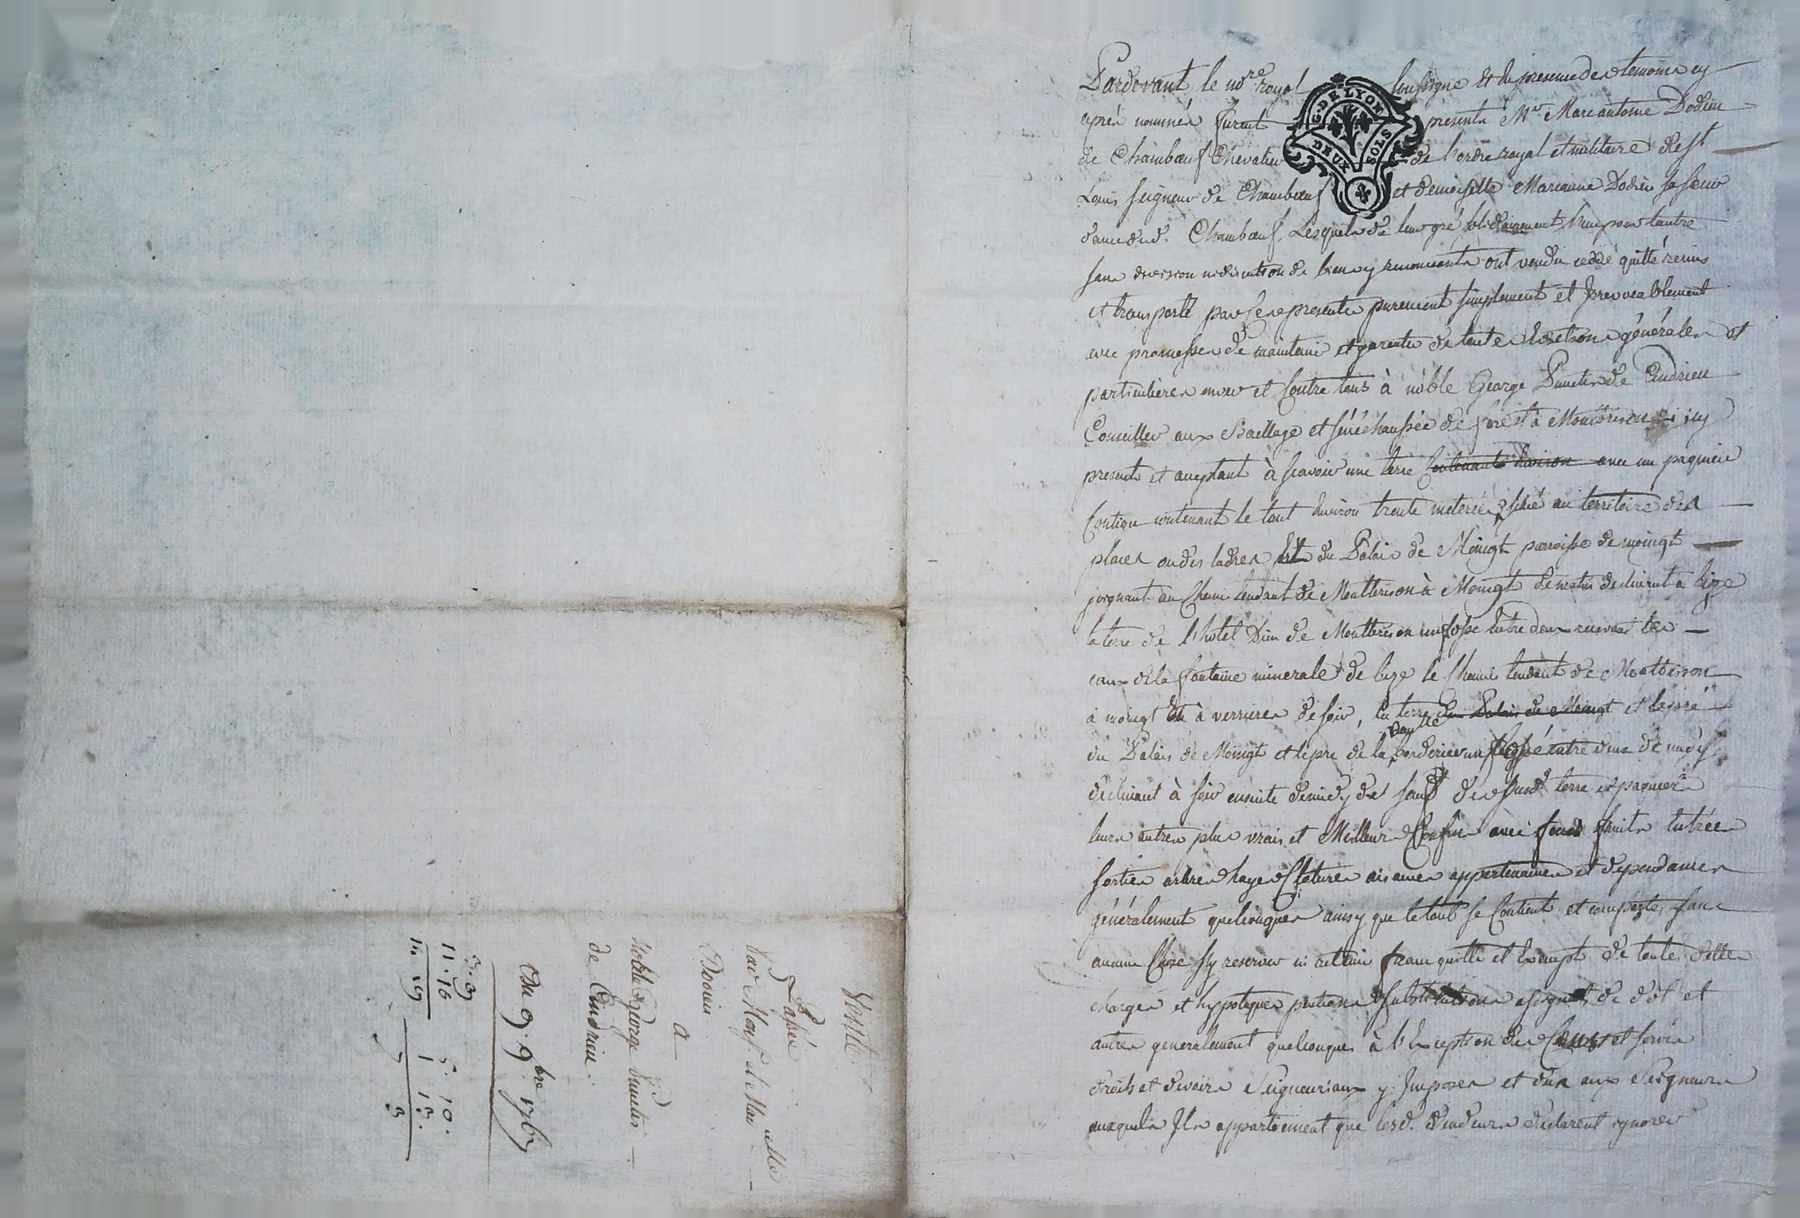 Pardevant le no.re royal soussigné et en presence des temoins cy
après nommés furent presents Mr. Marc antoine Dodieu
de Chambœuf Chevalier de l'ordre royal et militaire de st
Louis seigneur de Chambœuf et demoiselle Marianne Dodieu sa sœur
dame dud. Chambœuf, Lesquels de leur gré solidairement l'un pour l'autre
sans division ni discution de biens y renonceants ont vendu ceddé quitté remis
et transporté par ses presentes purement simplement et Irrevocablement
avec promesses de maintenir et garentir de toutes evictions générales et
particulieres envers et Contre tous à noble George Punctis de Cindrieu
Conseiller aux Bailliage et sénéchaussée de forest à Montbrison icy
present et acceptant à scavoir une terre Contenants Environ avec un paquier
Contigu contenant le tout Environ trente meterées situé au territoire des
places ou des ladres du Palais de Moingt parroisse de moingt
joignant au Chemin tendant de Montbrison à Moingt de matin declinant à bize
la terre de l'hotel Dieu de Montbrison un fossé Entre deux les
eaux de la fontaine minerale de bize le Chemin tendant de Montbrison
à moingt à verrieres de soir, la terre du Palais de Moingt et le pré
du Palais de Moingt et le pré de la un fossé entre deux de midy
declinant à soir ensuite de midy terre et paquier
leurs autres plus vrais et Meilleurs Confins avec fonds fruits Entrées
sorties arbres hayes Clotures aisances appartenances et dependances
généralement quelconques ainsy que le tout se Contient et comporte, sans
aucune Chose s'y reserver ni retenir franc quitte et Exempt de toutes dettes
charges et hypoteques pentions substitutions de dot et
autres generalement quelconques à l'Exception des Cens et servis
droits et devoirs Seigneuriaux y Imposés et dus aux Seigneurs
auxquels Ils appartiennent que lesd. Vendeurs declarent ignorer
G. DE LYON
DEUX SOLS
Vente
Passée
par Mons.r et Mlle
Dodieu
a
Noble George Punctis
de Cindrieu.
Du 9. 9bre 1767